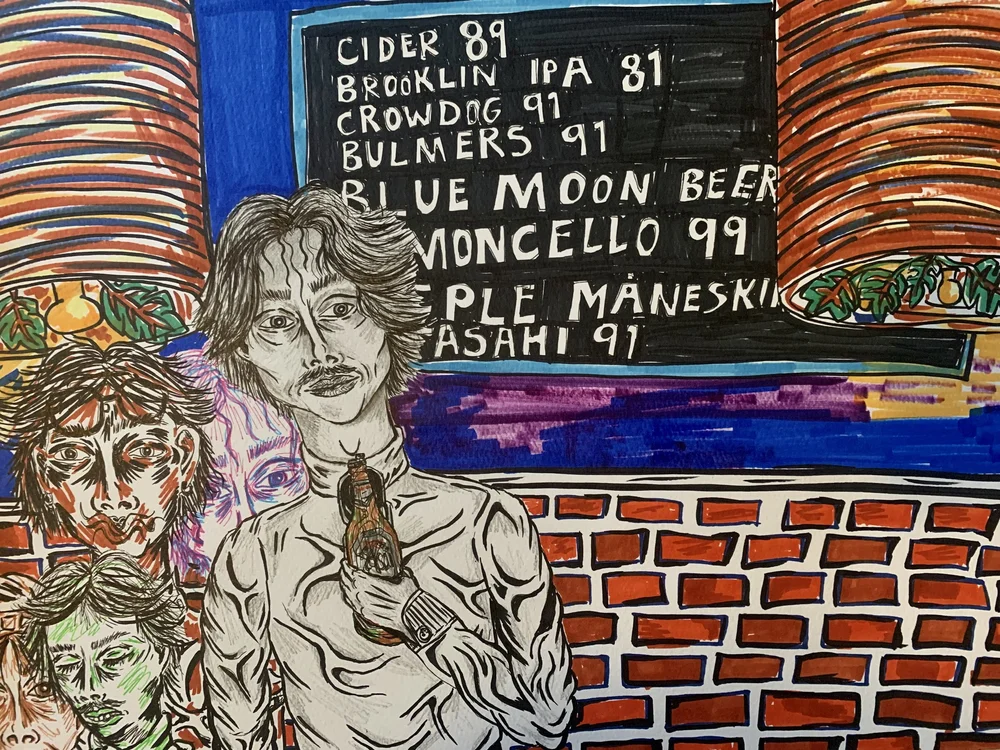 CIDER 89
BROOKLIN IPA 81
CROWDOG 91
BULMERS 91
BLUE MOON BEER
MONCELLO 99
PLE MÅNESKIN
ASAHI 91